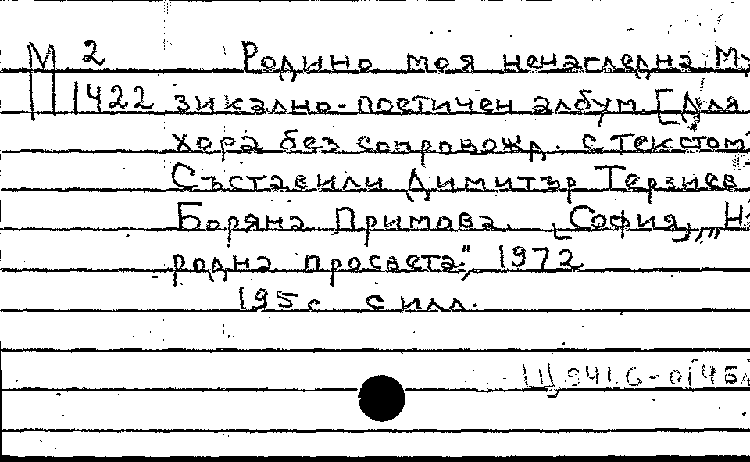 М 2 Родино моя ненагледна Му
1422 зикално-поетичен албум. [Для
хора без сопровожд. с текстом
Съставили Димитър Терзиев
Боряна Примова. [София], „На
родна просвета", 1972
195 с. с илл.